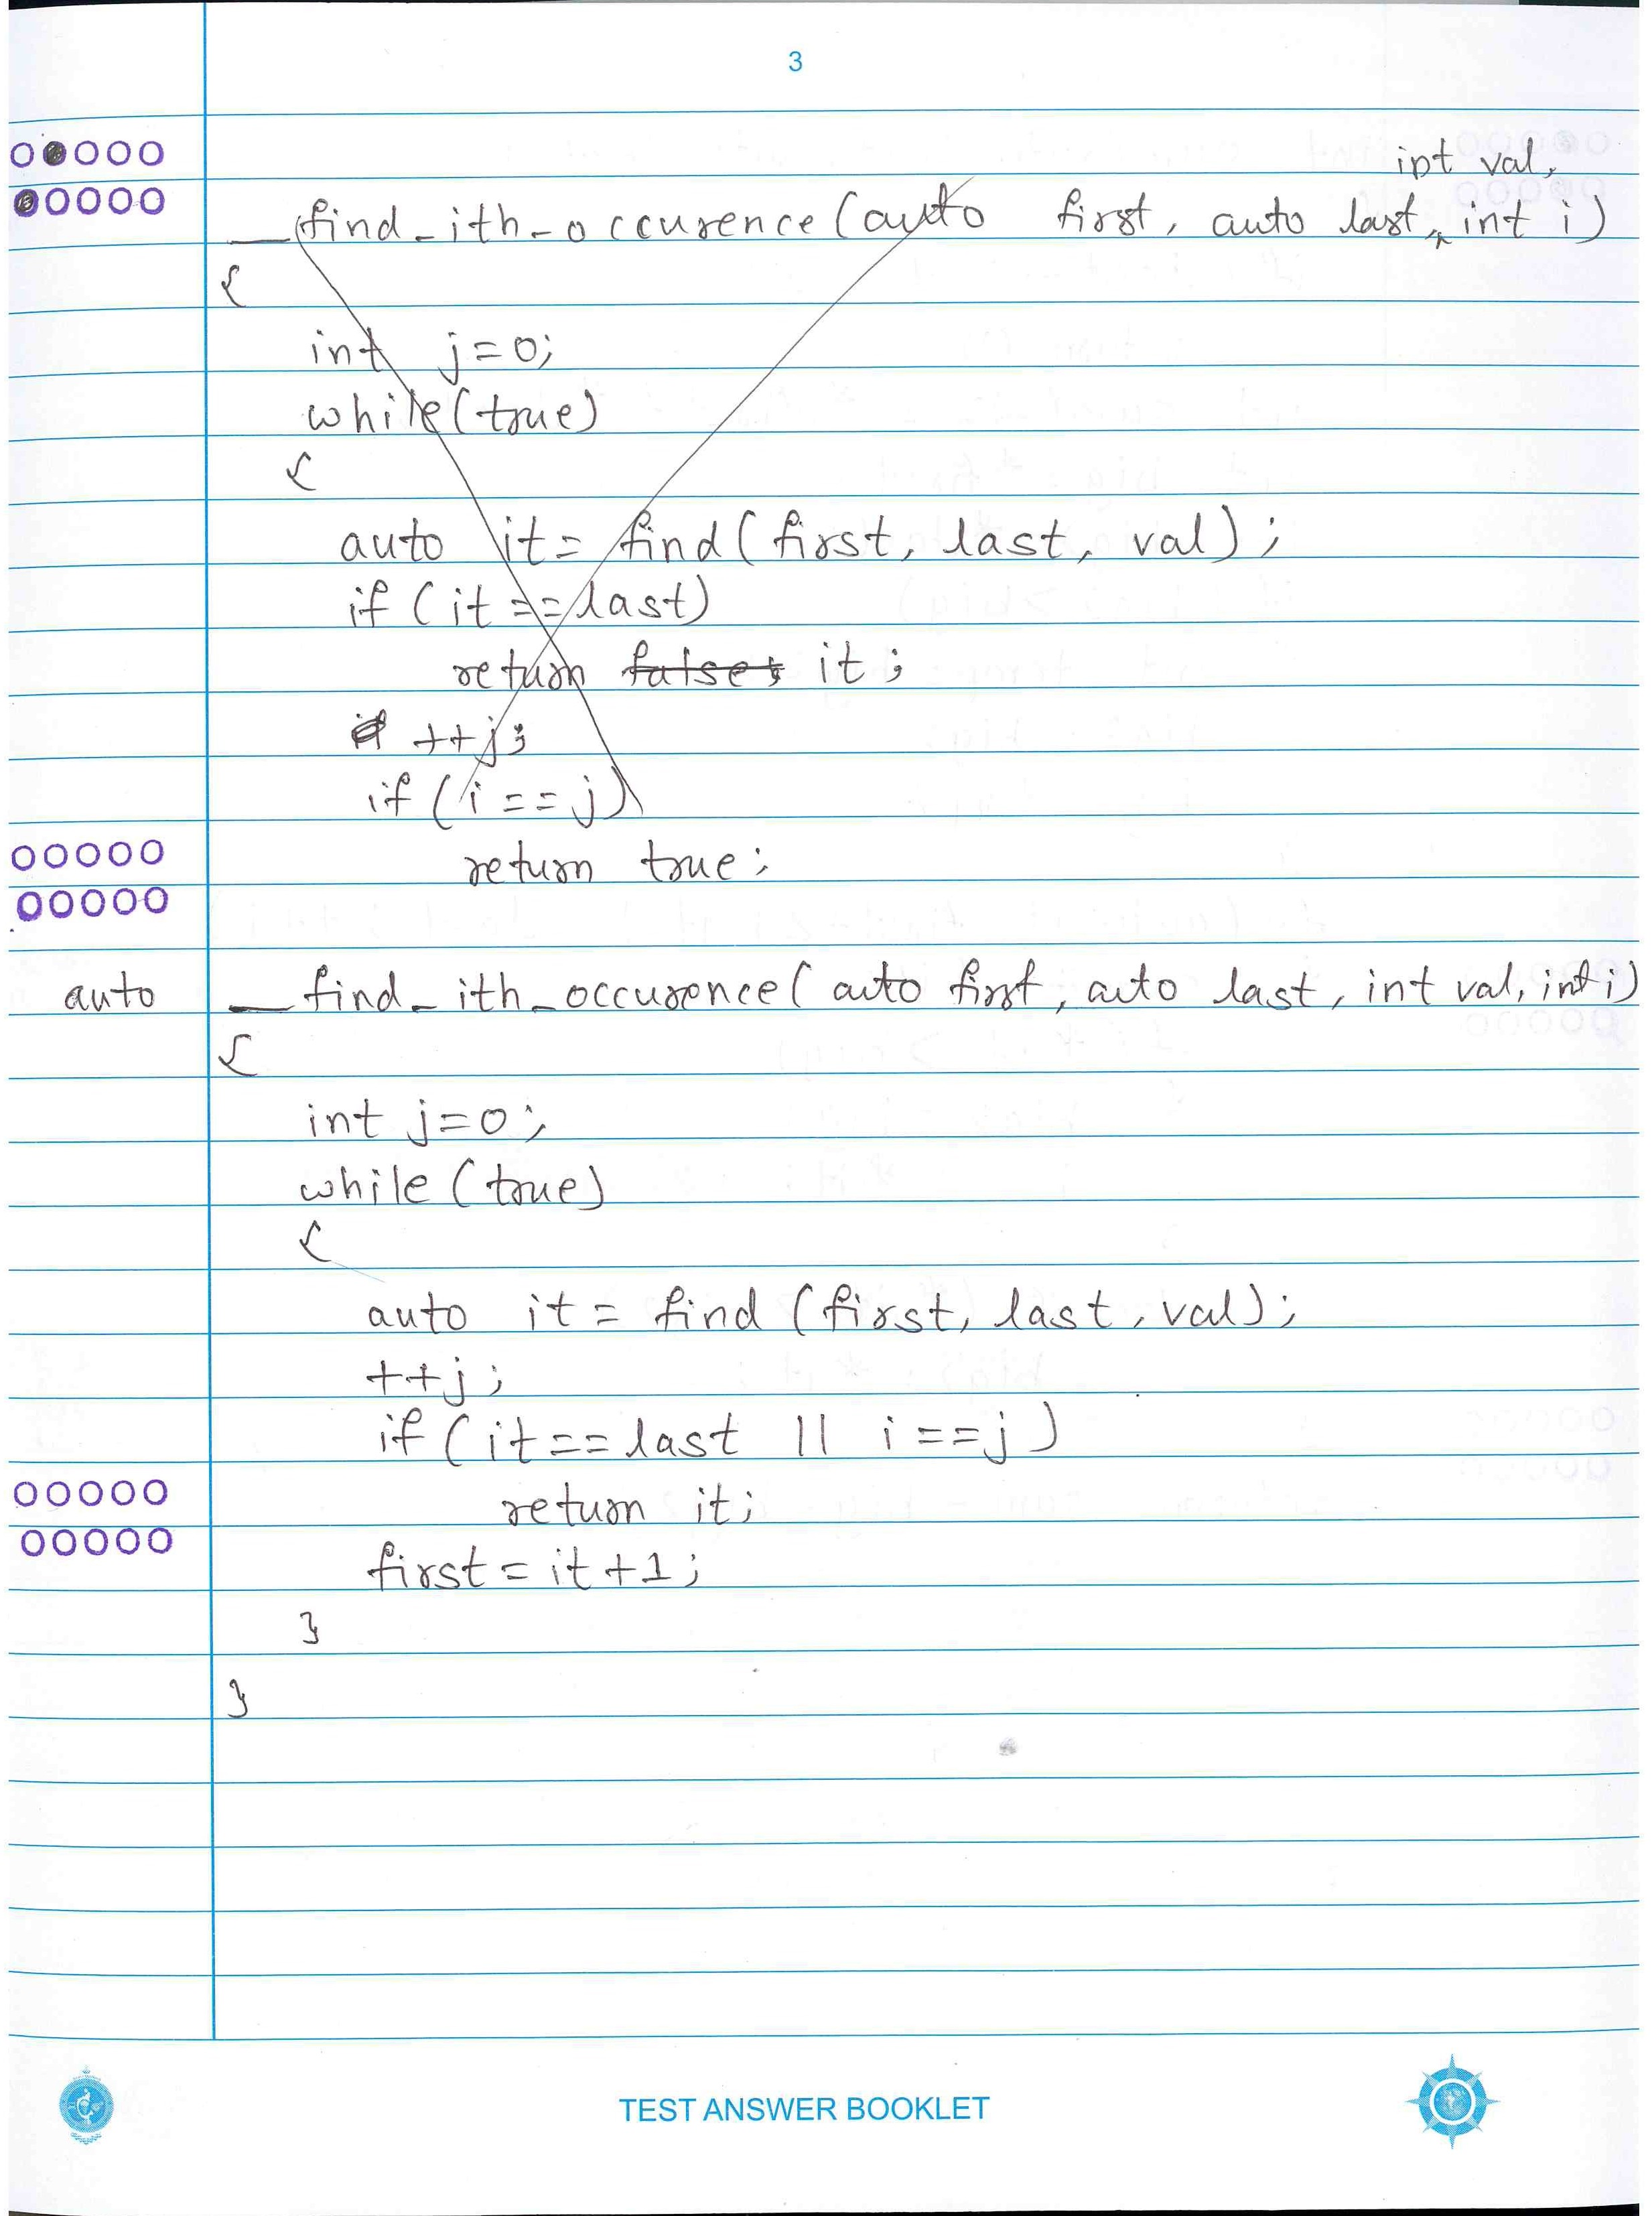 3
int val,
__find_ith_occurence(auto first, auto last, int i)
{
int j=0;
while(true)
{
auto it= find(first, last, val);
if (it ==last)
return false; it;
if ++j;
if (i==j)
return true;
auto __find_ith_occurence(auto first, auto last, int val, int i)
{
int j=0;
while (true)
{
auto it= find (first, last, val);
++j;
if (it==last || i==j)
return it;
first = it+1;
}
}
TEST ANSWER BOOKLET